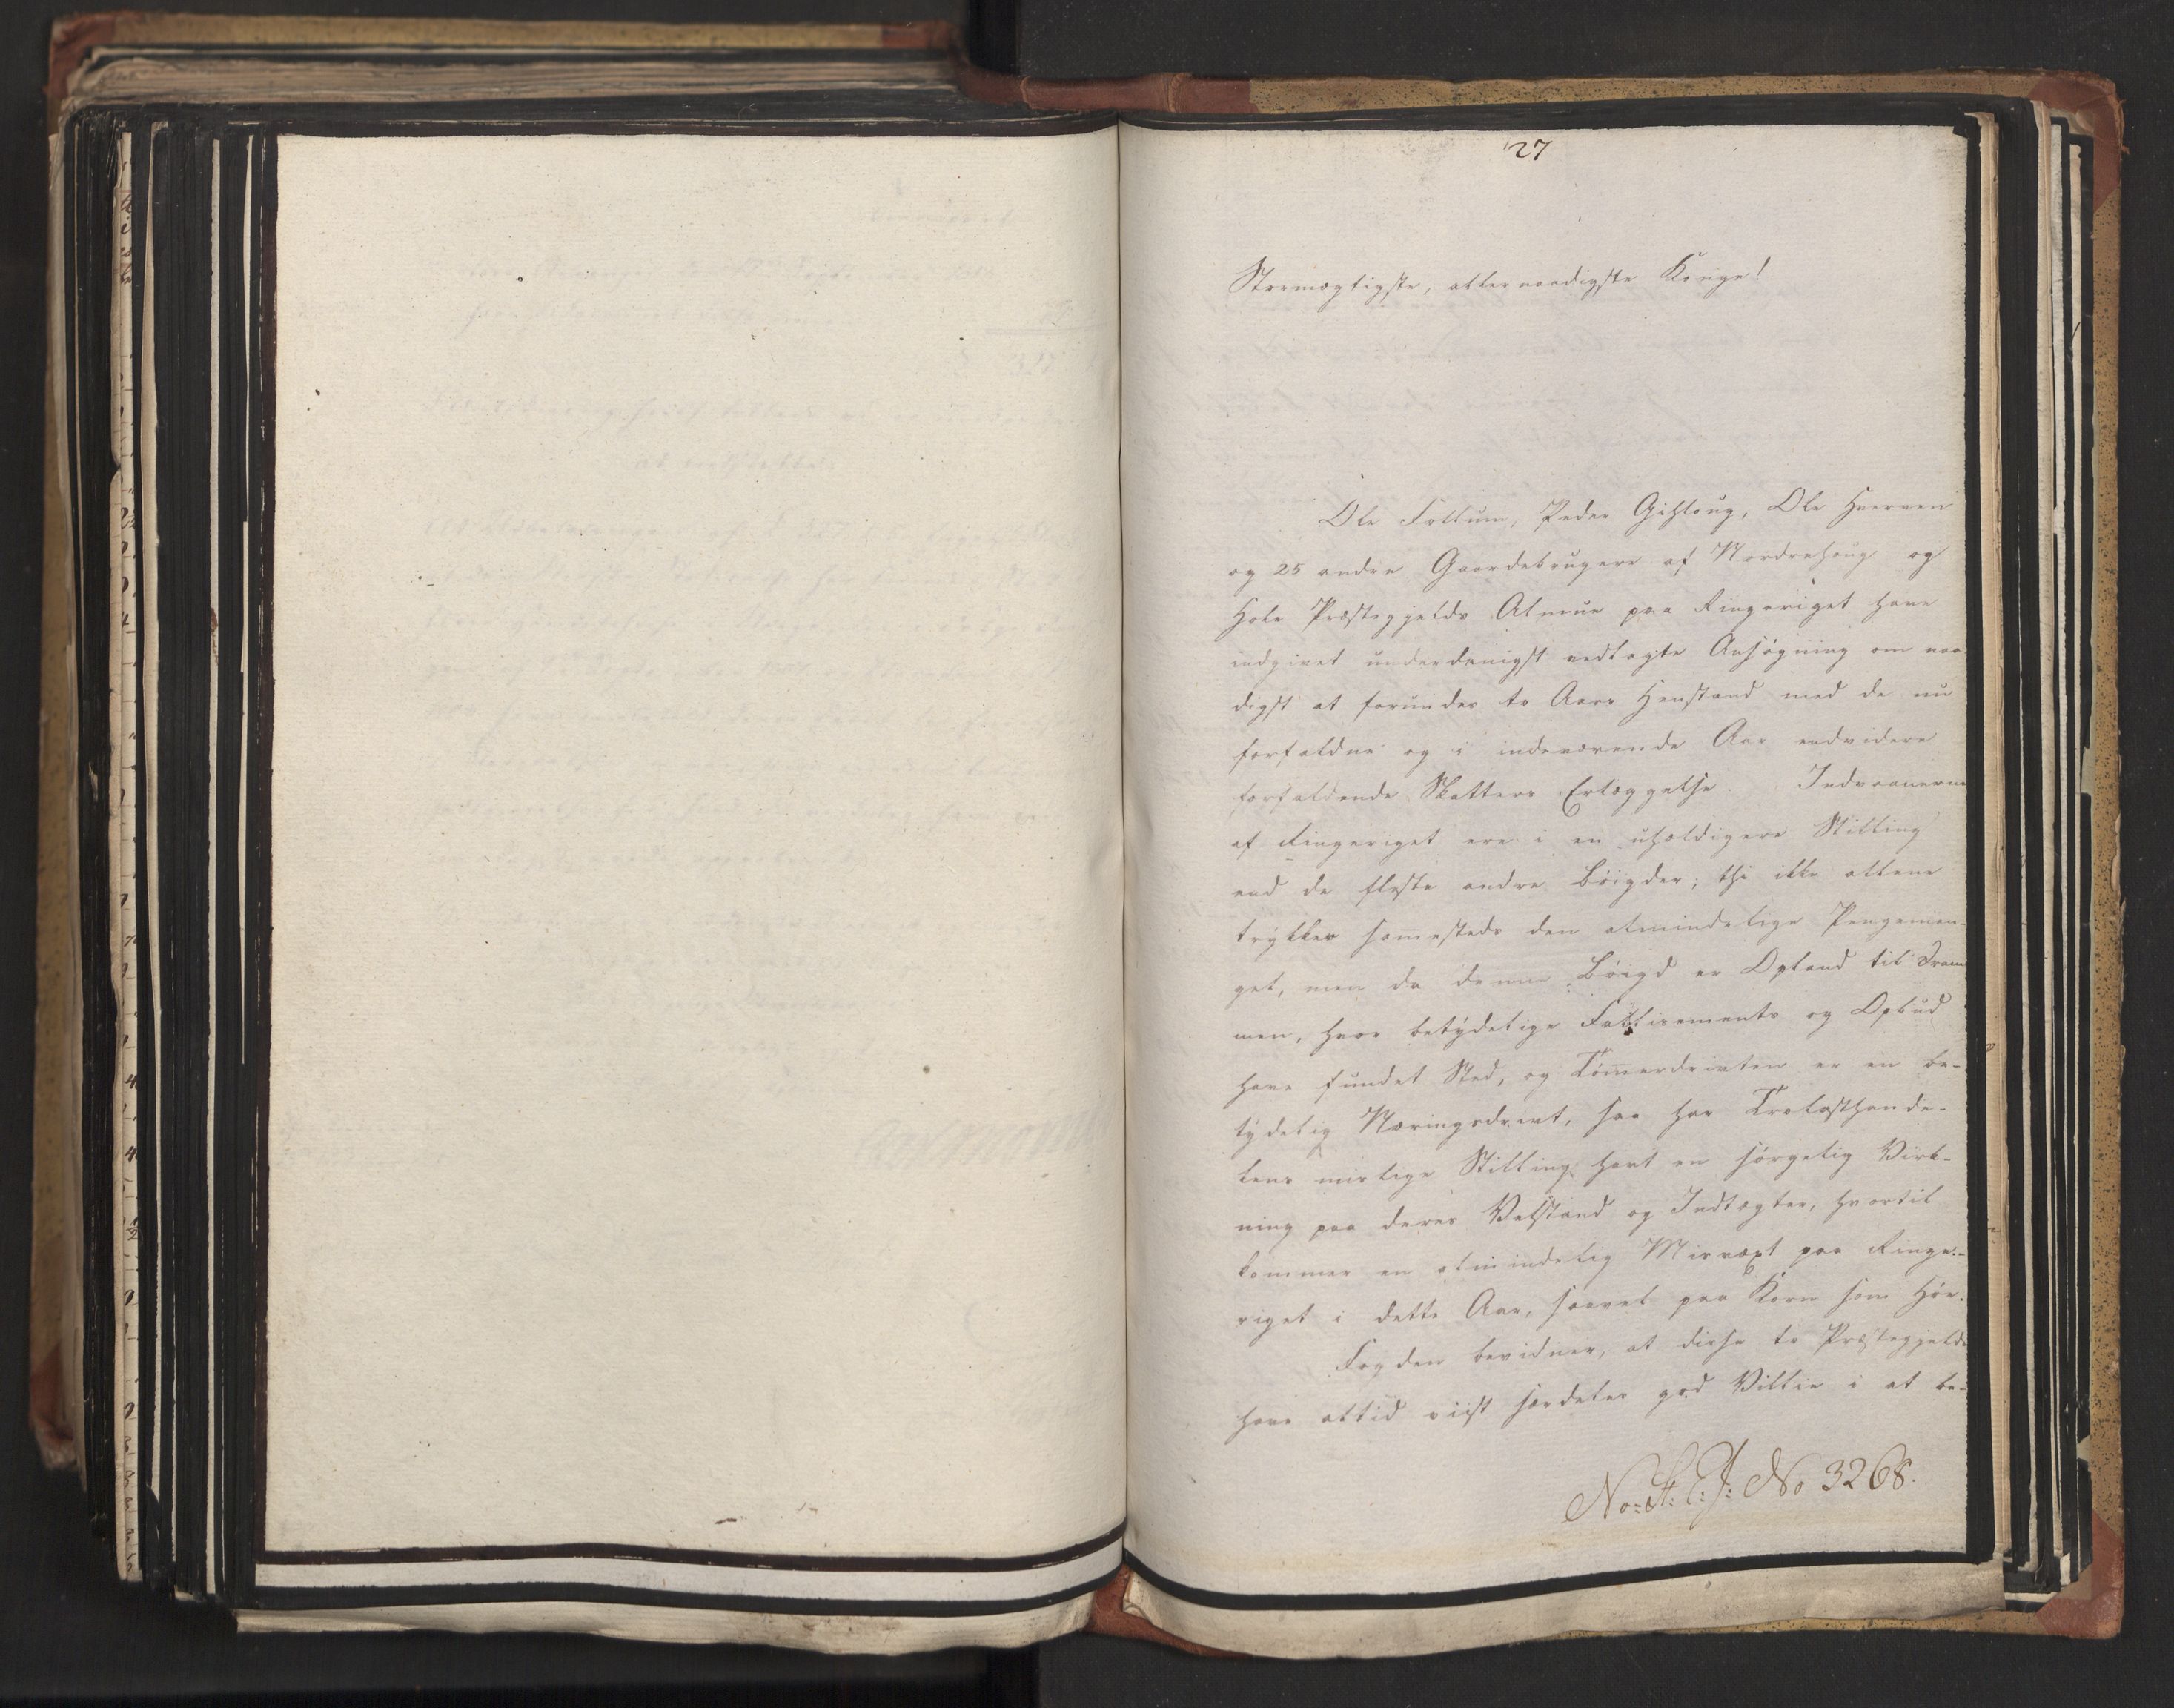 27
Stormægtigste, allernaadigste Konge!
Ole Follum, Peder Gihloug, Ole Hverven
og 25 andre Gaardebrugere af Nordrehoug og
Hole Præstegjelds Almue paa Ringeriget have
indgivet underdanigst vedlagte Ansøgning om naa
digst at forundes to Aars Henstand med de nu
forfaldne og i indeværende Aar endvidere
forfaldende Skatters Erlæggelse. Indvaanerne
af Ringeriget ere i en uheldigere Stilling
end de fleste andre Bøigder; thi ikke allene
trykker sammesteds den almindelige Pengeman-
gel, men da denne Bøigd er Opland til Dram
men, hvor betydelige Fallissements og Opbud
have fundet Sted, og Tømmerdrivten er en be-
tydelig Næringsdrivt, saa har Trælasthande-
lens mislige Stilling havt en sørgelig Virk-
ning paa deres Velstand og Indtægter, hvortil
kommer en almindelig Misvæxt paa Ringe-
riget i dette Aar, saavel paa Korn som Høe.
Fogden bevidner, at disse to Præstegjelde
have altid viist særdeles god Villie i at be-
No: St: C: J: No 3268.